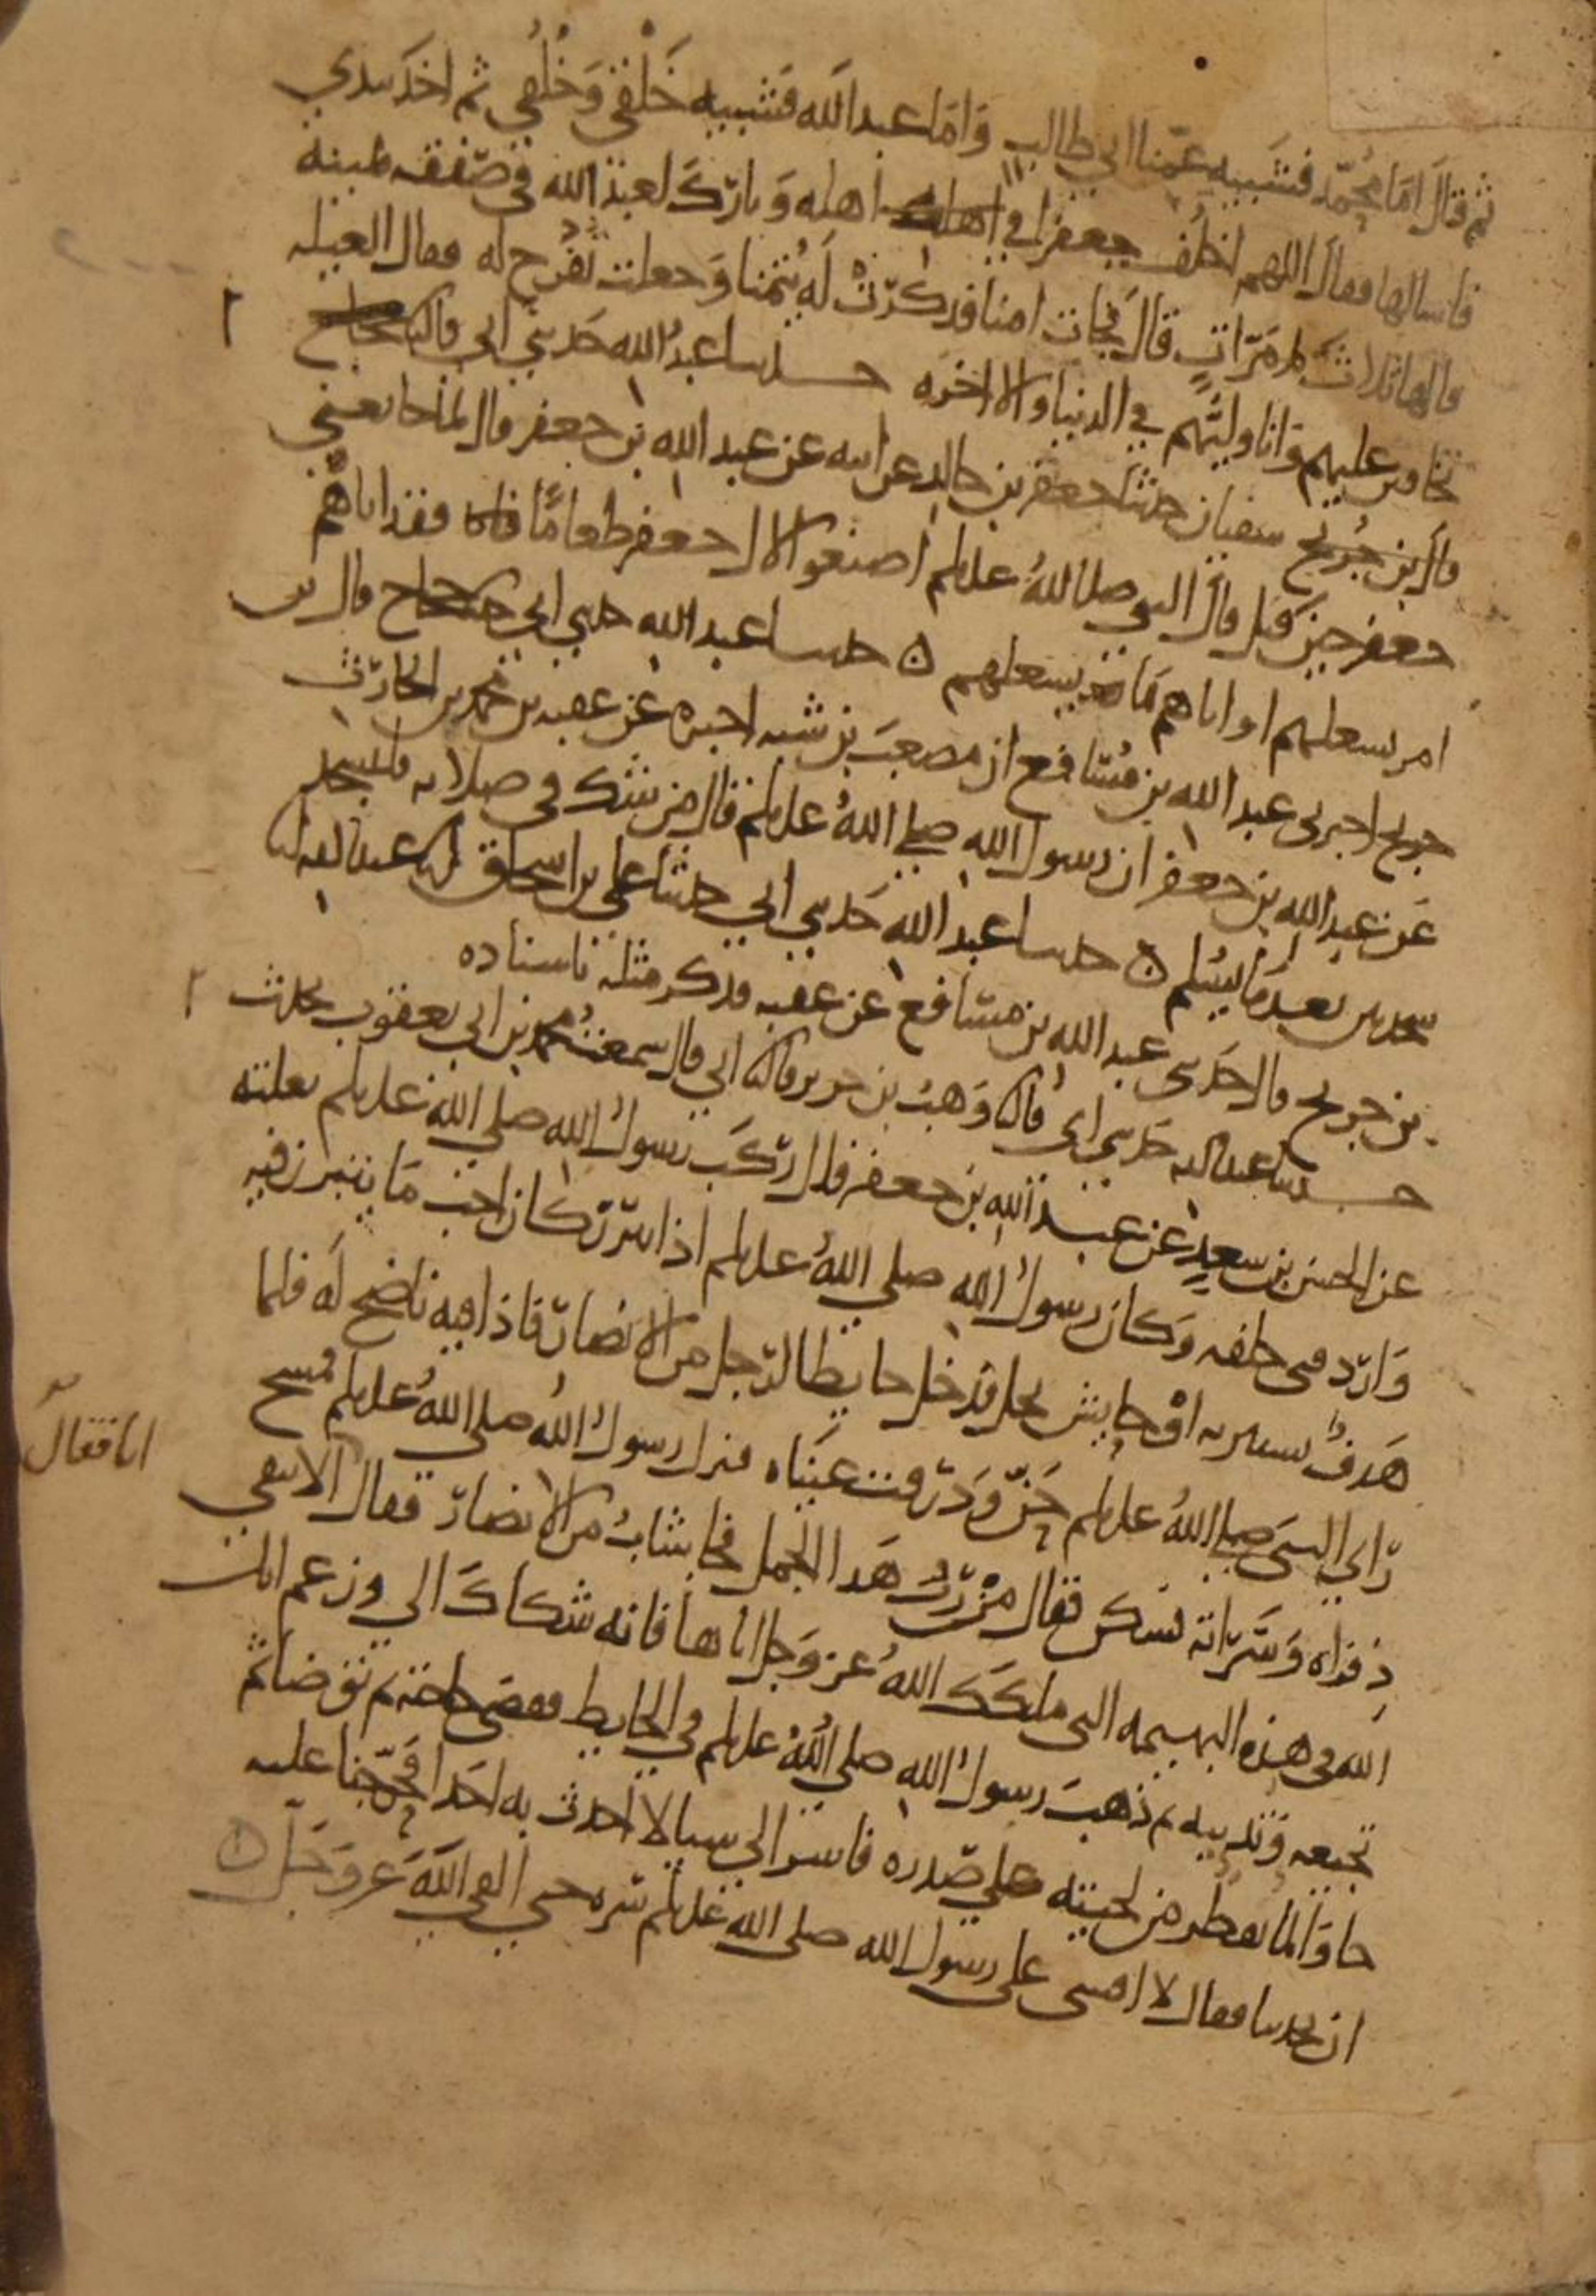 ثم قال اما محمد فشبيه عمنا ابي طالب واما عبد الله فشبيه خلقي وخلقي ثم اخذ بيدي
فاشالها فقال اللهم اخلف جعفرا في اهله وبارك لعبد الله في صفقه يمينه
قالها ثلاث مرات قال فجات امنا فذكرت له يتمنا وجعلت تفرح له فقال العيله
تخافين عليهم وانا وليهم في الدنيا والاخره حدثنا عبد الله حدثني ابي
قال سفيان حدثنا جعفر بن خالد عن ابيه عن عبد الله بن جعفر قال لما جا نعي
جعفر حين قتل قال النبي صلى الله عليه وسلم اصنعوا لال جعفر طعاما فقد اتاهم
امر يشغلهم او اتاهم ما يشغلهم ه حدثنا عبد الله حدثني ابي حجاج قال بن
جريج اخبرني عبد الله بن مسافع ان مصعب بن شيبه اخبره عن عقبه بن محمد بن الحارث
عن عبد الله بن جعفر ان رسول الله صلى الله عليه وسلم قال من شك في صلاته فليسجد
سجدتين بعد ما يسلم ه حدثنا عبد الله حدثني ابي حدثنا علي بن اسحاق انا عبد الله انا
بن جريج قال حدثني عبد الله بن مسافع عن عقبه فذكر مثله باسناده
حدثنا عبد الله حدثني ابي ثنا وهب بن جرير ثنا ابي قال سمعت محمد بن ابي يعقوب يحدث
عن الحسن بن سعد عن عبد الله بن جعفر قال ركب رسول الله صلى الله عليه وسلم بغلته
واردفني خلفه وكان رسول الله صلى الله عليه وسلم اذا تبرز كان احب ما يتبرز فيه
هدف يستتر به او حايش نخل فدخل حايطا لرجل من الانصار فاذا فيه ناضح له فلما
راي النبي صلى الله عليه وسلم حن وذرفت عيناه فنزل رسول الله صلى الله عليه وسلم فمسح
ذفراه وسراته فسكن فقال من رب هذا الجمل فجا شاب من الانصار فقال الا تتقي
انا فقال
الله في هذه البهيمه التي ملكك الله عز وجل اياها فانه شكاك الي وزعم انك
تجيعه وتدييه ثم ذهب رسول الله صلى الله عليه وسلم في الحايط فقضى حاجته ثم توضا ثم
جا والما يقطر من لحيته على صدره فاسر الي شيا لا احدث به احدا فحرجنا عليه
ان يحدثنا فقال لا افشي على رسول الله صلى الله عليه وسلم سره حتى القى الله عز وجل ه